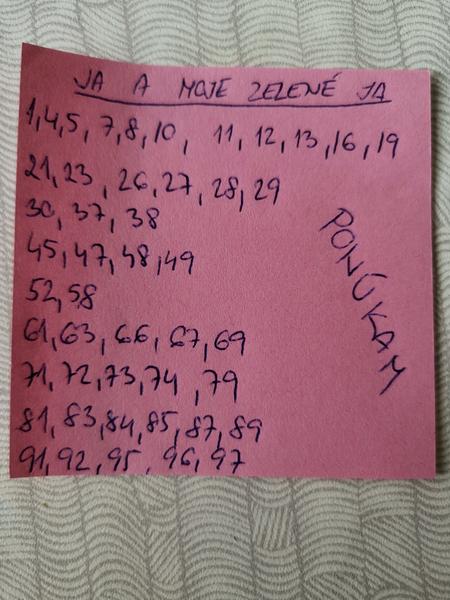 JA A MOJE ZELENÉ JA
1,4,5, 7,8,10, 11,12,13,16,19
21,23,26,27,28,29
30,37,38
45,47,48,49
52,58
61,63,66,67,69
71,72,73,74,79
81,83,84,85,87,89
91,92,95,96,97
PONÚKAM